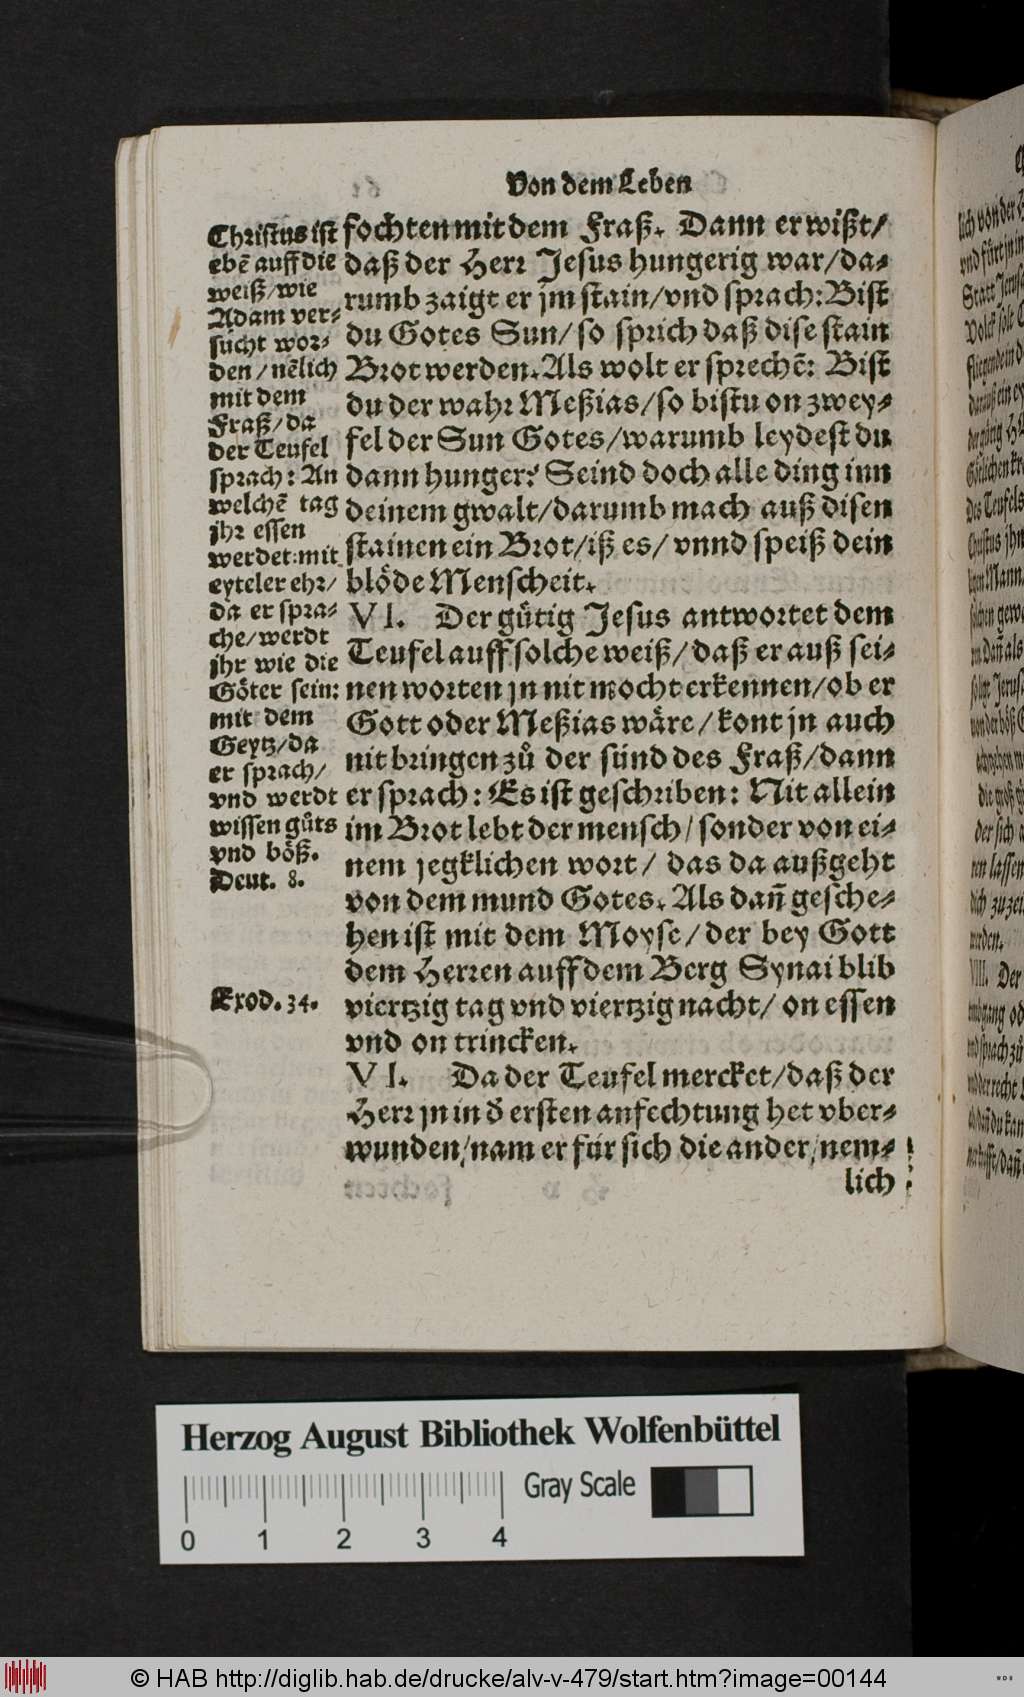 Von dem Leben
Christus ist
ebẽ auff die
weiß/wie
Adam ver⸗
sücht wor⸗
den/nẽlich
mit dem
Fraß/da
der Teufel
sprach: An
welchẽ tag
jhr essen
werdet: mit
eyteler ehr/
da er spra⸗
che/werdt
jhr wie die
Göter sein:
mit dem
Geytz/da
er sprach/
vnd werdt
wissen gůts
vnd böß.
Deut. 8.
Exod. 34.
fochten mit dem Fraß. Dann er wißt/
daß der Herr Jesus hungerig war/da⸗
rumb zaigt er jm stain/vnd sprach: Bist
du Gotes Sun/so sprich daß dise stain
Brot werden. Als wolt er sprechẽ: Bist
du der wahr Meßias/so bistu on zwey⸗
fel der Sun Gotes/warumb leydest du
dann hunger? Seind doch alle ding inn
deinem gwalt/darumb mach auß disen
stainen ein Brot/iß es/vnnd speiß dein
blöde Menscheit.
VI. Der gütig Jesus antwortet dem
Teufel auff solche weiß/daß er auß sei⸗
nen worten jn nit mocht erkennen/ob er
Gott oder Meßias wäre/kont jn auch
nit bringen zů der sünd des Fraß/dann
er sprach: Es ist geschriben: Nit allein
im Brot lebt der mensch/sonder von ei⸗
nem jegklichen wort/das da außgeht
von dem mund Gotes. Als dañ gesche⸗
hen ist mit dem Moyse/der bey Gott
dem Herren auff dem Berg Synai blib
viertzig tag vnd viertzig nacht/on essen
vnd on trincken.
VI. Da der Teufel mercket/daß der
Herr jn in d̕ ersten anfechtung het vber⸗
wunden/nam er für sich die ander/nem⸗
lich
Herzog August Bibliothek Wolfenbüttel
Gray Scale
0 1 2 3 4
© HAB http://diglib.hab.de/drucke/alv-v-479/start.htm?image=00144